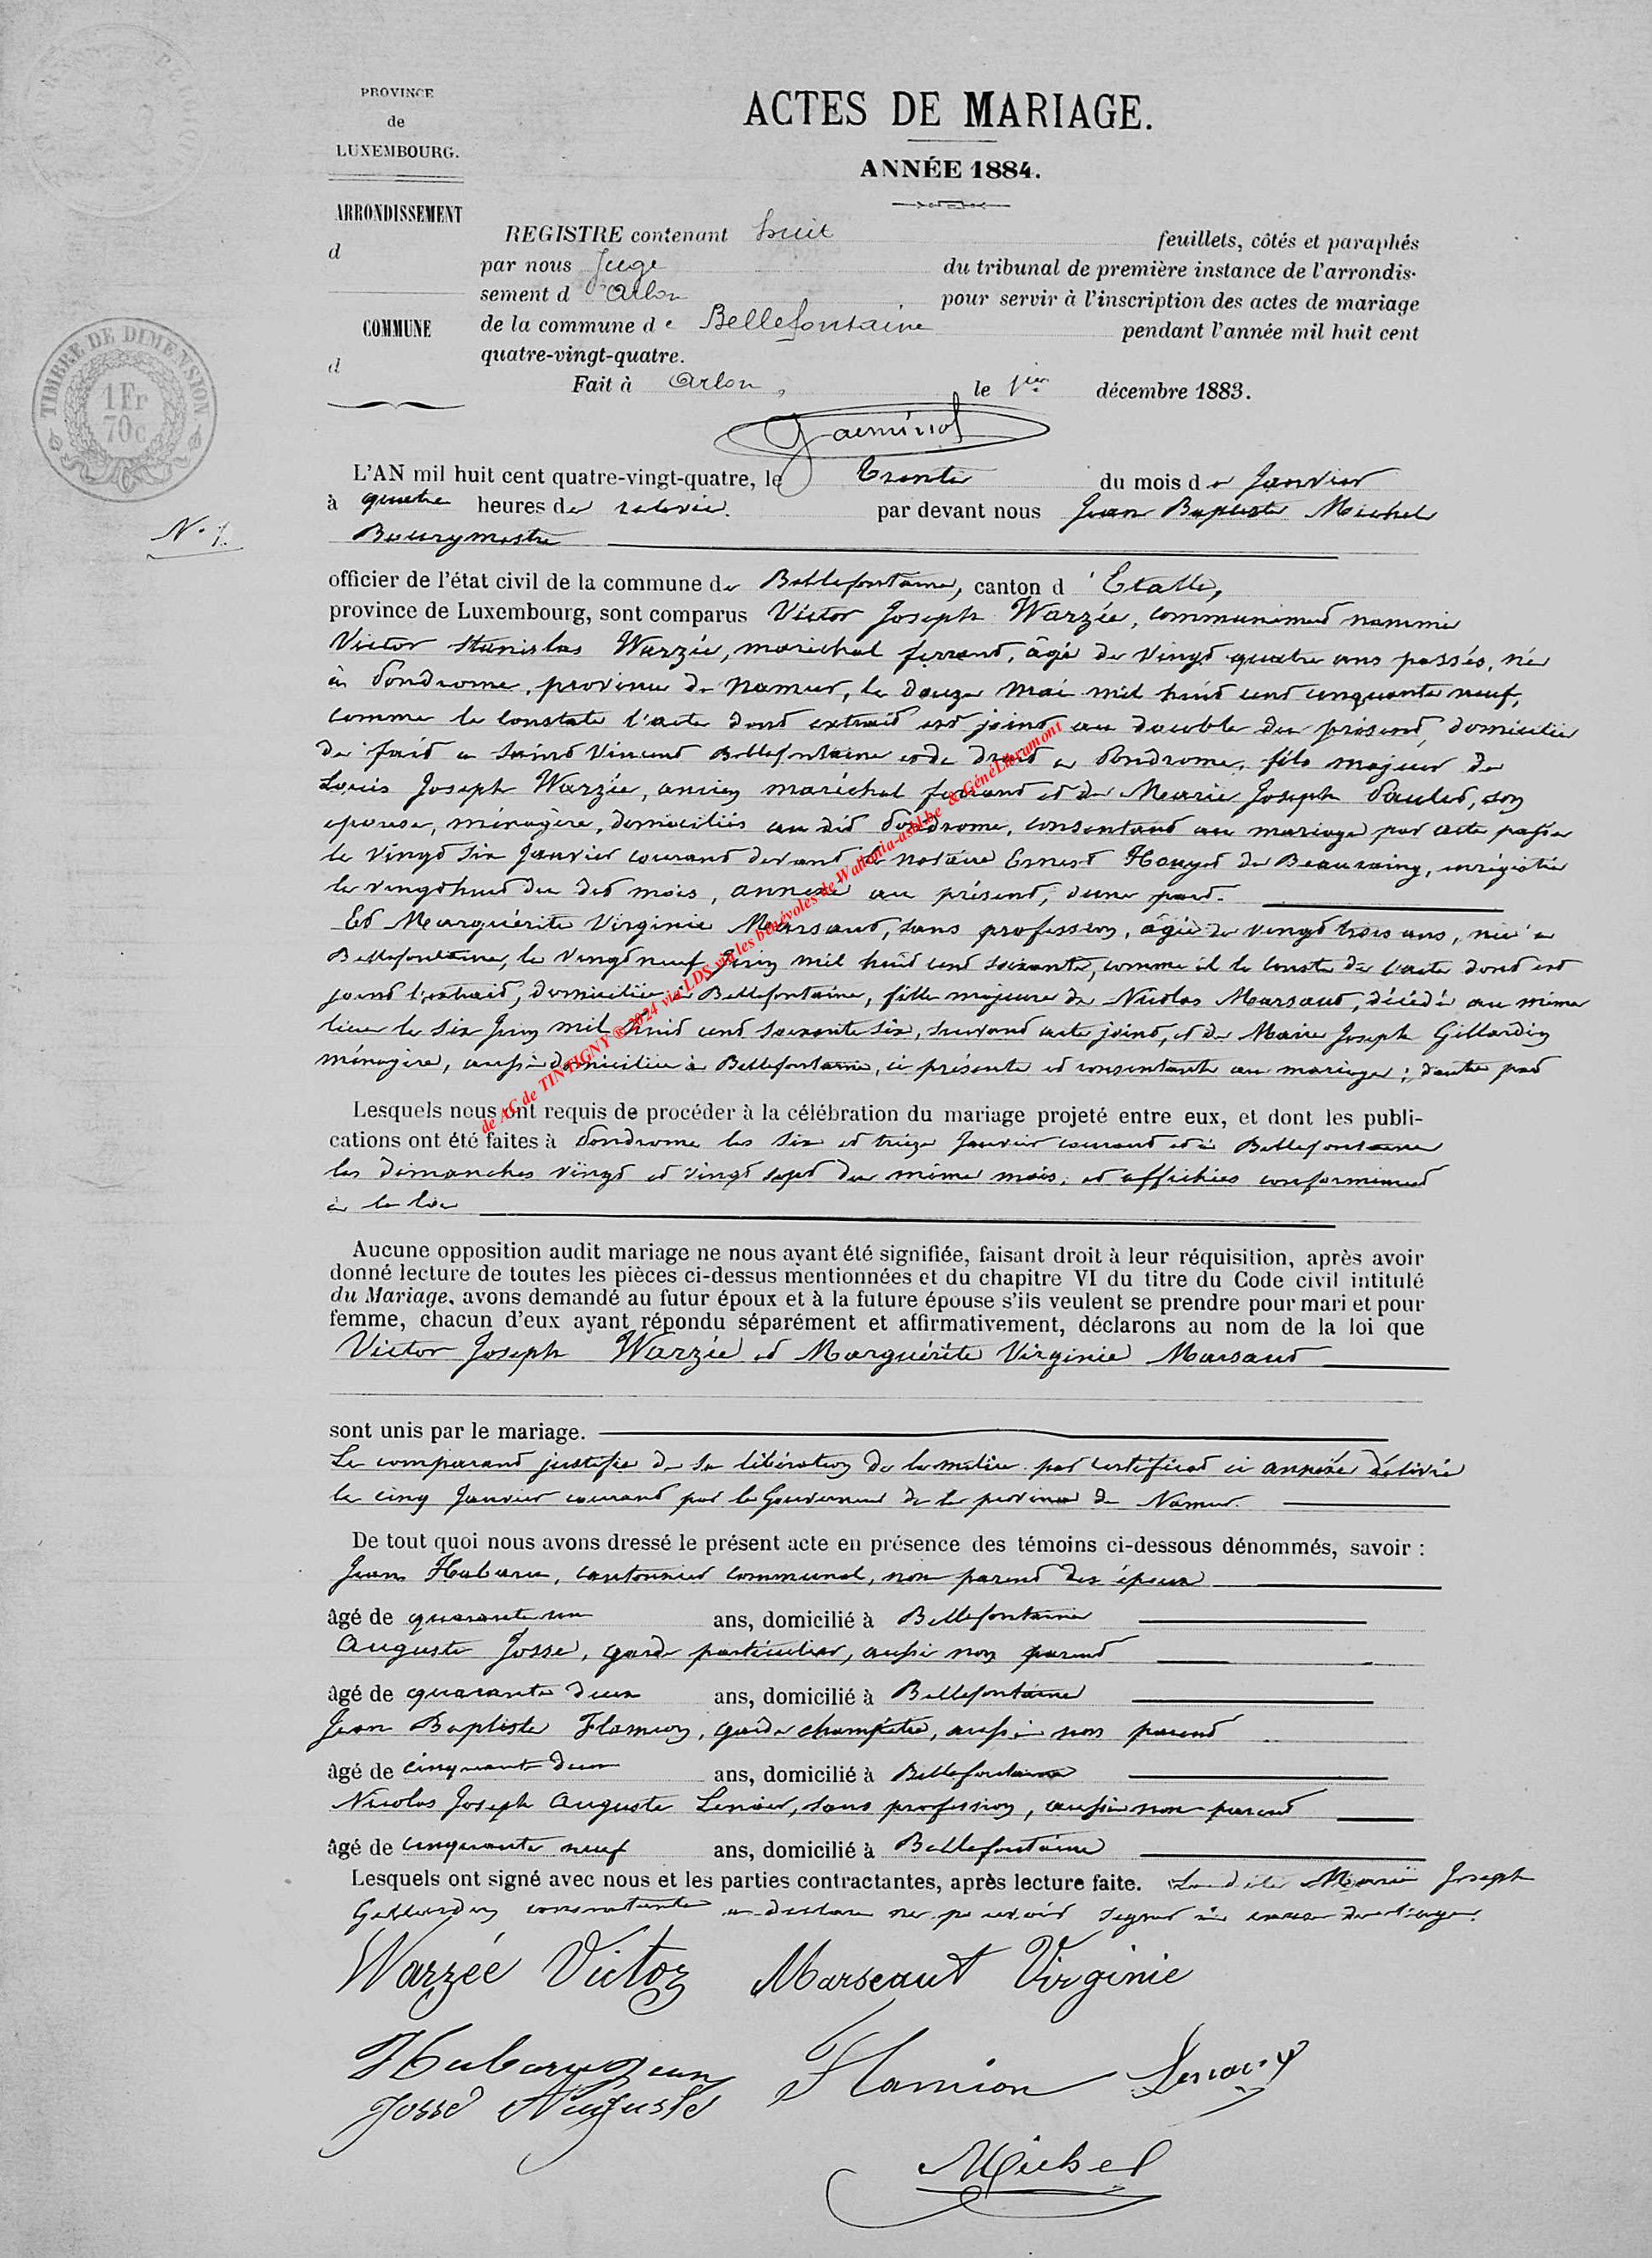 PROVINCE
de
LUXEMBOURG.
ARRONDISSEMENT
d
COMMUNE
d
ACTES DE MARIAGE.
ANNÉE 1884.
REGISTRE contenant huit feuillets, côtés et paraphés
par nous Juge du tribunal de première instance de l'arrondis-
sement d'Arlon pour servir à l'inscription des actes de mariage
de la commune de Bellefontaine pendant l'année mil huit cent
quatre-vingt-quatre.
Fait à Arlon, le 1ier décembre 1883.
TIMBRE DE DIMENSION
1 Fr
70c
N° 1.
L'AN mil huit cent quatre-vingt-quatre, le Trente du mois de Janvier
à quatre heures de relevée. par devant nous Jean Baptiste Michel
Bourgmestre
officier de l'état civil de la commune de Bellefontaine, canton d'Etalle,
province de Luxembourg, sont comparus Victor Joseph Warzée, communément nommé
Victor Stanislas Warzée, maréchal ferrant, âgé de vingt quatre ans passés, né
à Pondrome, province de Namur, le douze mai mil huit cent cinquante neuf,
comme le constate l'acte dont extrait est joint au double du présent, domicilié
de fait à Saint Vincent Bellefontaine et de droit à Pondrome, fils majeur de
Louis Joseph Warzée, ancien maréchal ferrant et de Marie Joseph Paulet, son
épouse, ménagère, domiciliés au dit Pondrome, consentant au mariage par acte passé
le vingt six Janvier courant devant le notaire Ernest Houyet de Beauraing, enrégistré
le vingt huit du dit mois, annexé au présent; d'une part.
Et Marguérite Virginie Marsaut, sans profession, âgée de vingt trois ans, née à
Bellefontaine, le vingt neuf Juin mil huit cent soixante, comme il le conste de l'acte dont est
joint l'extrait, domiciliée à Bellefontaine, fille majeure de Nicolas Marsaut, décédé au même
lieu le six Juin mil huit cent soixante six, suivant acte joint, et de Marie Joseph Gillardin
ménagère, aussi domiciliée à Bellefontaine, ci présente et consentante au mariage; d'autre part
de AC de TINTIGNY ® 2024 via LDS via les bénévoles de Wallonia-asbl.be & GénéLibramont
Lesquels nous ont requis de procéder à la célébration du mariage projeté entre eux, et dont les publi-
cations ont été faites à Pondrome les six et treize Janvier courant et à Bellefontaine
les dimanches vingt et vingt sept du même mois, et affichées conformément
à la loi
Aucune opposition audit mariage ne nous ayant été signifiée, faisant droit à leur réquisition, après avoir
donné lecture de toutes les pièces ci-dessus mentionnées et du chapitre VI du titre du Code civil intitulé
du Mariage, avons demandé au futur époux et à la future épouse s'ils veulent se prendre pour mari et pour
femme, chacun d'eux ayant répondu séparément et affirmativement, déclarons au nom de la loi que
Victor Joseph Warzée et Marguérite Virginie Marsaut
sont unis par le mariage.
Le comparant justifie de sa libération de la milice par certificat ci annexé délivré
le cinq Janvier courant par le Gouverneur de la province de Namur.
De tout quoi nous avons dressé le présent acte en présence des témoins ci-dessous dénommés, savoir :
Jean Hubaru, cantonnier communal, non parent des époux
âgé de quarante un ans, domicilié à Bellefontaine
Auguste Josse, garde particulier, aussi non parent
âgé de quarante deux ans, domicilié à Bellefontaine
Jean Baptiste Flamion, garde champêtre, aussi non parent
âgé de cinquante deux ans, domicilié à Bellefontaine
Nicolas Joseph Auguste Lenoir, sans profession, aussi non parent
âgé de cinquante neuf ans, domicilié à Bellefontaine
Lesquels ont signé avec nous et les parties contractantes, après lecture faite. La dite Marie Joseph
Gillardin consentante a déclaré ne pouvoir signer à cause
Warzée Victor Marseaut Virginie
Hubaru Jean Flamion Lenoir
Josse Auguste
Michel